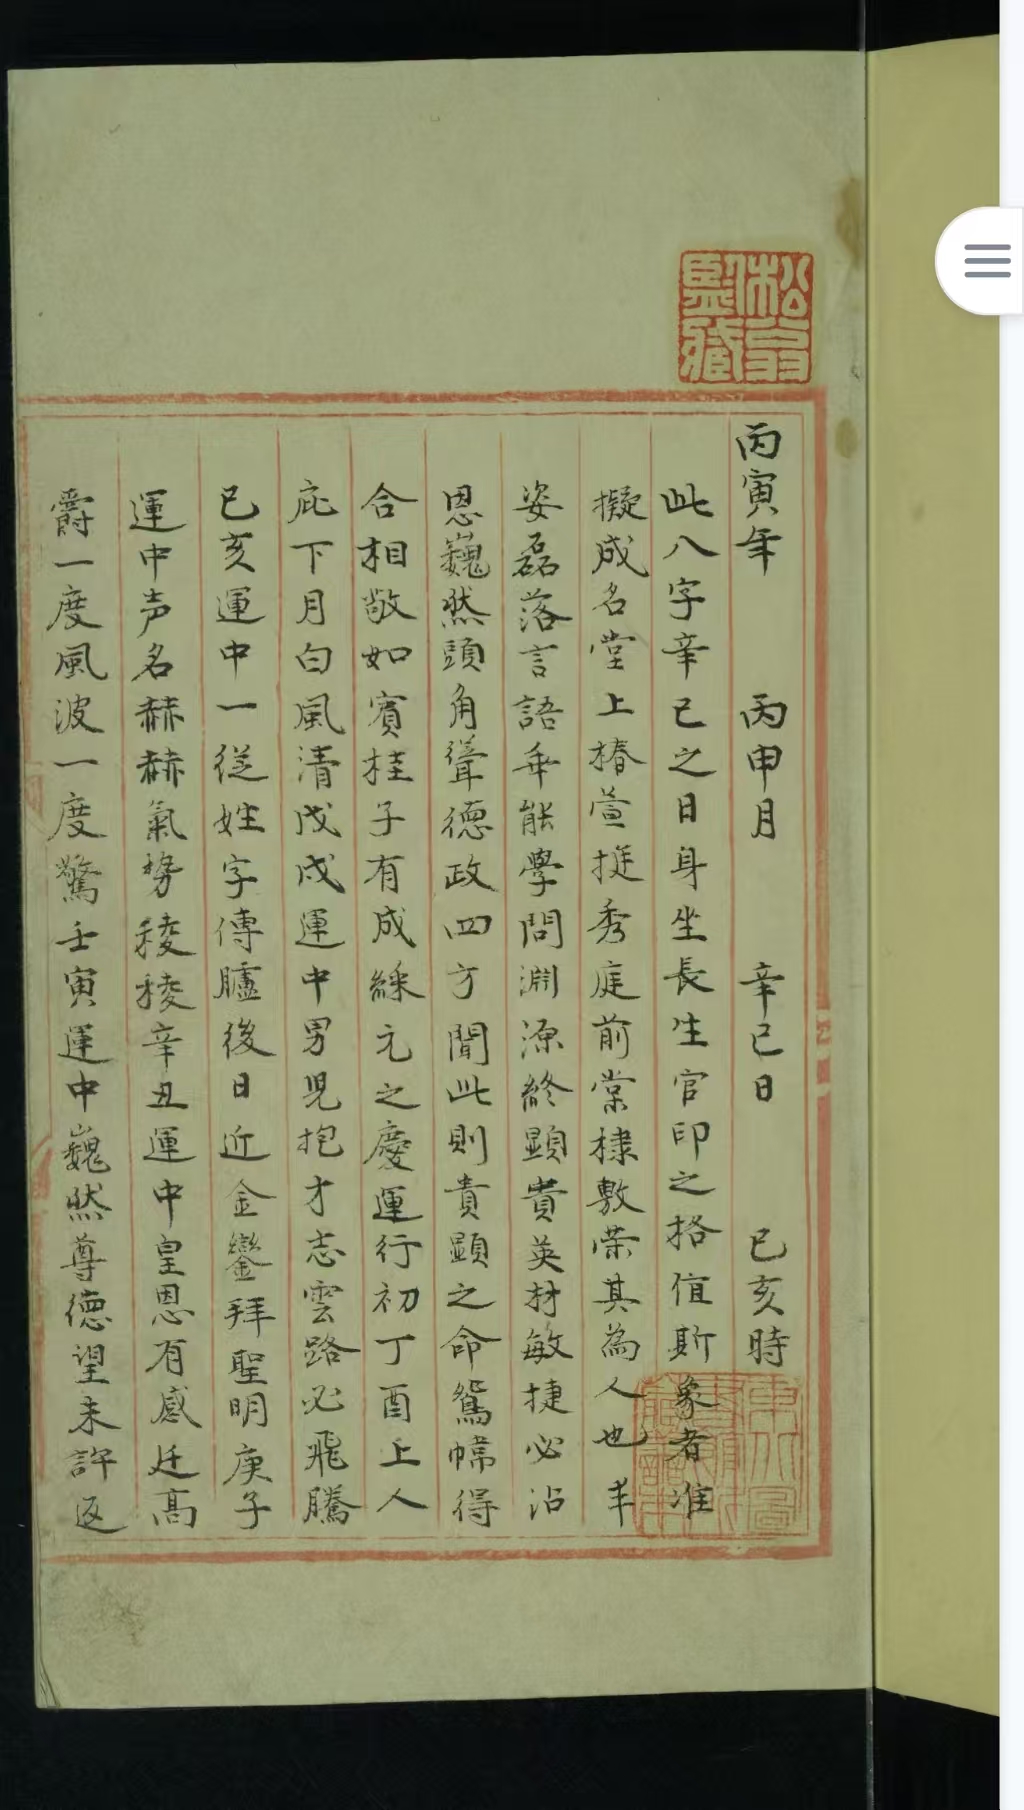 丙寅年 丙申月 辛巳日 己亥時
此八字辛巳之日身坐長生官印之格值斯象者准
擬成名堂上椿萱挺秀庭前棠棣敷荣其為人也丰
姿磊落言語乖能學問淵源終顯貴英材敏捷必沾
恩巍然頭角聳德政四方聞此則貴顯之命鴛幃得
合相敬如賓桂子有成綵元之慶運行初丁酉上人
庇下月白風清戊戌運中男児抱才志雲路必飛騰
己亥運中一從姓字傳臚後日近金鑾拜聖明庚子
運中声名赫赫氣势稜稜辛丑運中皇恩有感廷高
爵一度風波一度驚壬寅運中巍然尊德望未許返
松翁
監藏